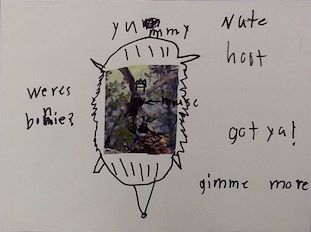 yummy
Nate
hoot
weres
mouse
got ya!
gimme more